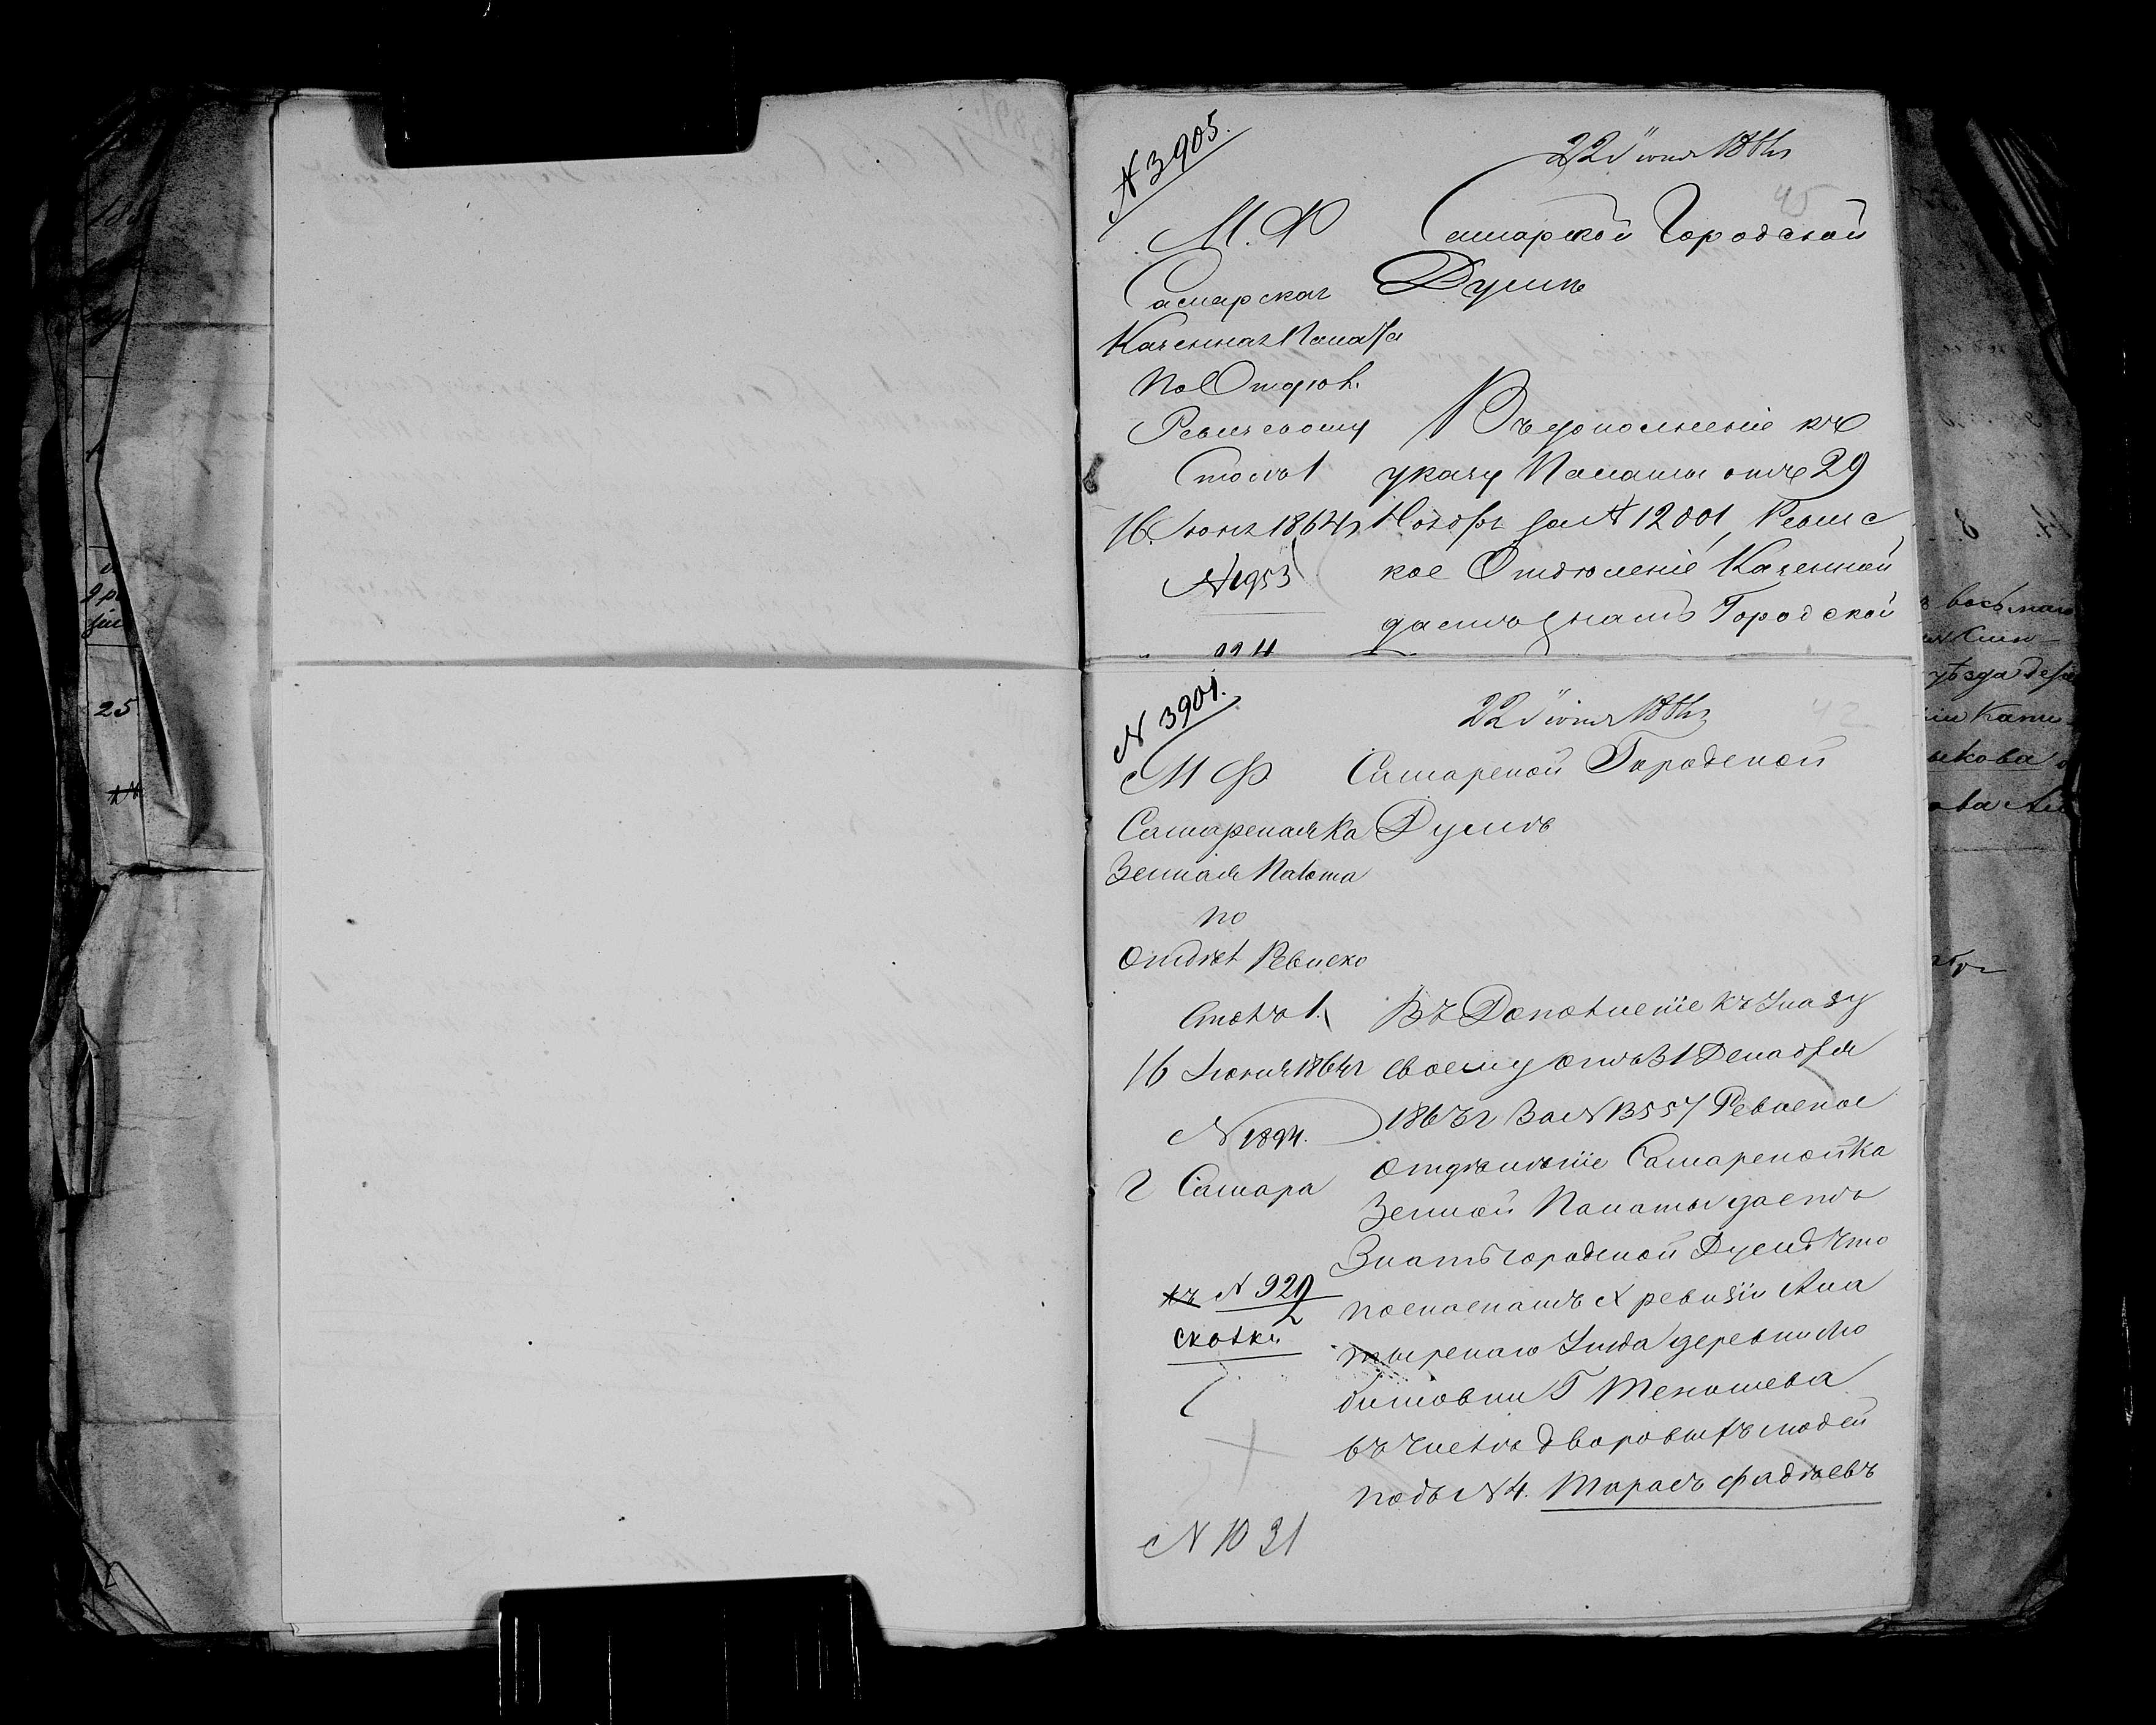 N 3905.
22 іюня 1864 г
45
М. Ф
Самарской Городской
Самарская
Думѣ
Казенная Палата
по Отдѣл.
Ревизскому
Въ дополненіе къ
Столъ 1
указу Палаты отъ 29
16 Іюня 1864 г
Ноября за N 12001, Ревизс
N 1953
кое Отдѣленіе Казенной
даетъ знать Городской
N 3901.
22 іюня 1864 г
42
М Ф
Самарской Городской
Самарская Ка
Думѣ
Зенная Палата
по
Отдѣл Ревизско
Столъ 1.
Въ Дополненіе къ Указу
16 Іюня 1864 г
своему отъ 31 Декабря
1863 г За N 13557 Ревизкое
N 1894.
Отдѣленіе Самарской Ка
г Самара
Зенной Палаты даетъ
Знать городской Думѣ что
къ N 929
2
по сказкамъ X ревизіи Ала
сказки
тырскаго Уѣзда деревни Лю
бимовки Г Тенишева
въ числѣ дворовыхъ людей
подъ N 4. Тарасъ Фадѣевъ
N 1031
25
восьмаго
уѣзда
ыкова